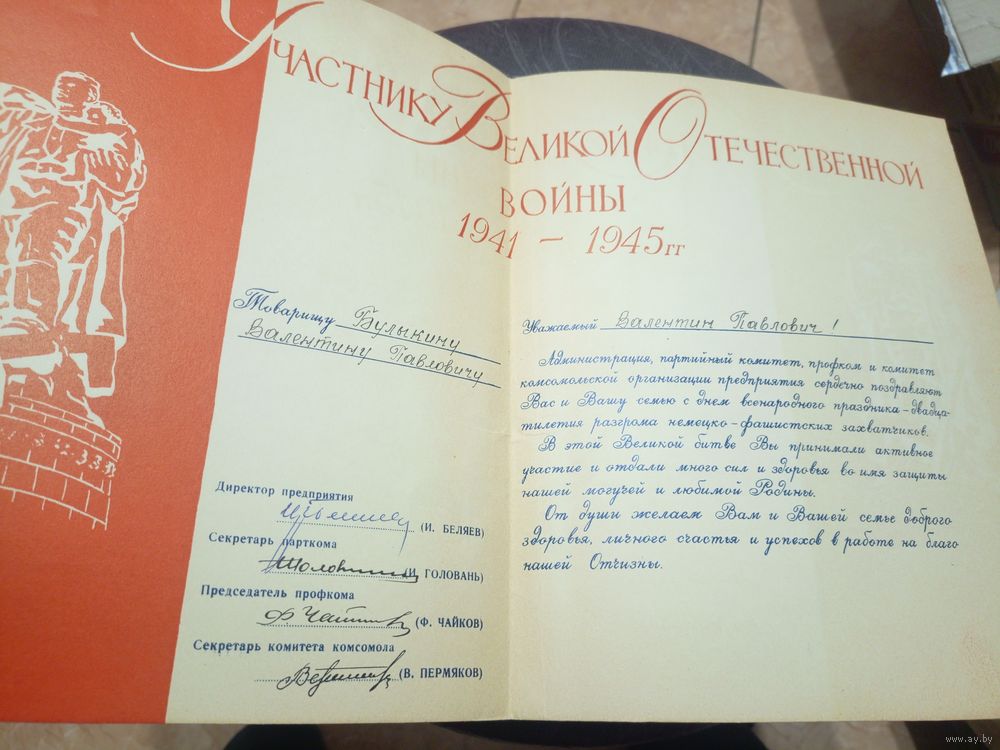 Участнику Великой Отечественной
войны
1941 – 1945 гг
Товарищу Булыкину
Валентину Павловичу
Директор предприятия
(И. БЕЛЯЕВ)
Секретарь парткома
(И. ГОЛОВАНЬ)
Председатель профкома
Ф. Чайков (Ф. ЧАЙКОВ)
Секретарь комитета комсомола
(В. ПЕРМЯКОВ)
Уважаемый Валентин Павлович!
Администрация, партийный комитет, профком и комитет
комсомольской организации предприятия сердечно поздравляют
Вас и Вашу семью с днем всенародного праздника – двадца-
тилетия разгрома немецко-фашистских захватчиков.
В этой Великой битве Вы принимали активное
участие и отдали много сил и здоровья во имя защиты
нашей могучей и любимой Родины.
От души желаем Вам и Вашей семье доброго
здоровья, личного счастья и успехов в работе на благо
нашей Отчизны.
www.ay.by